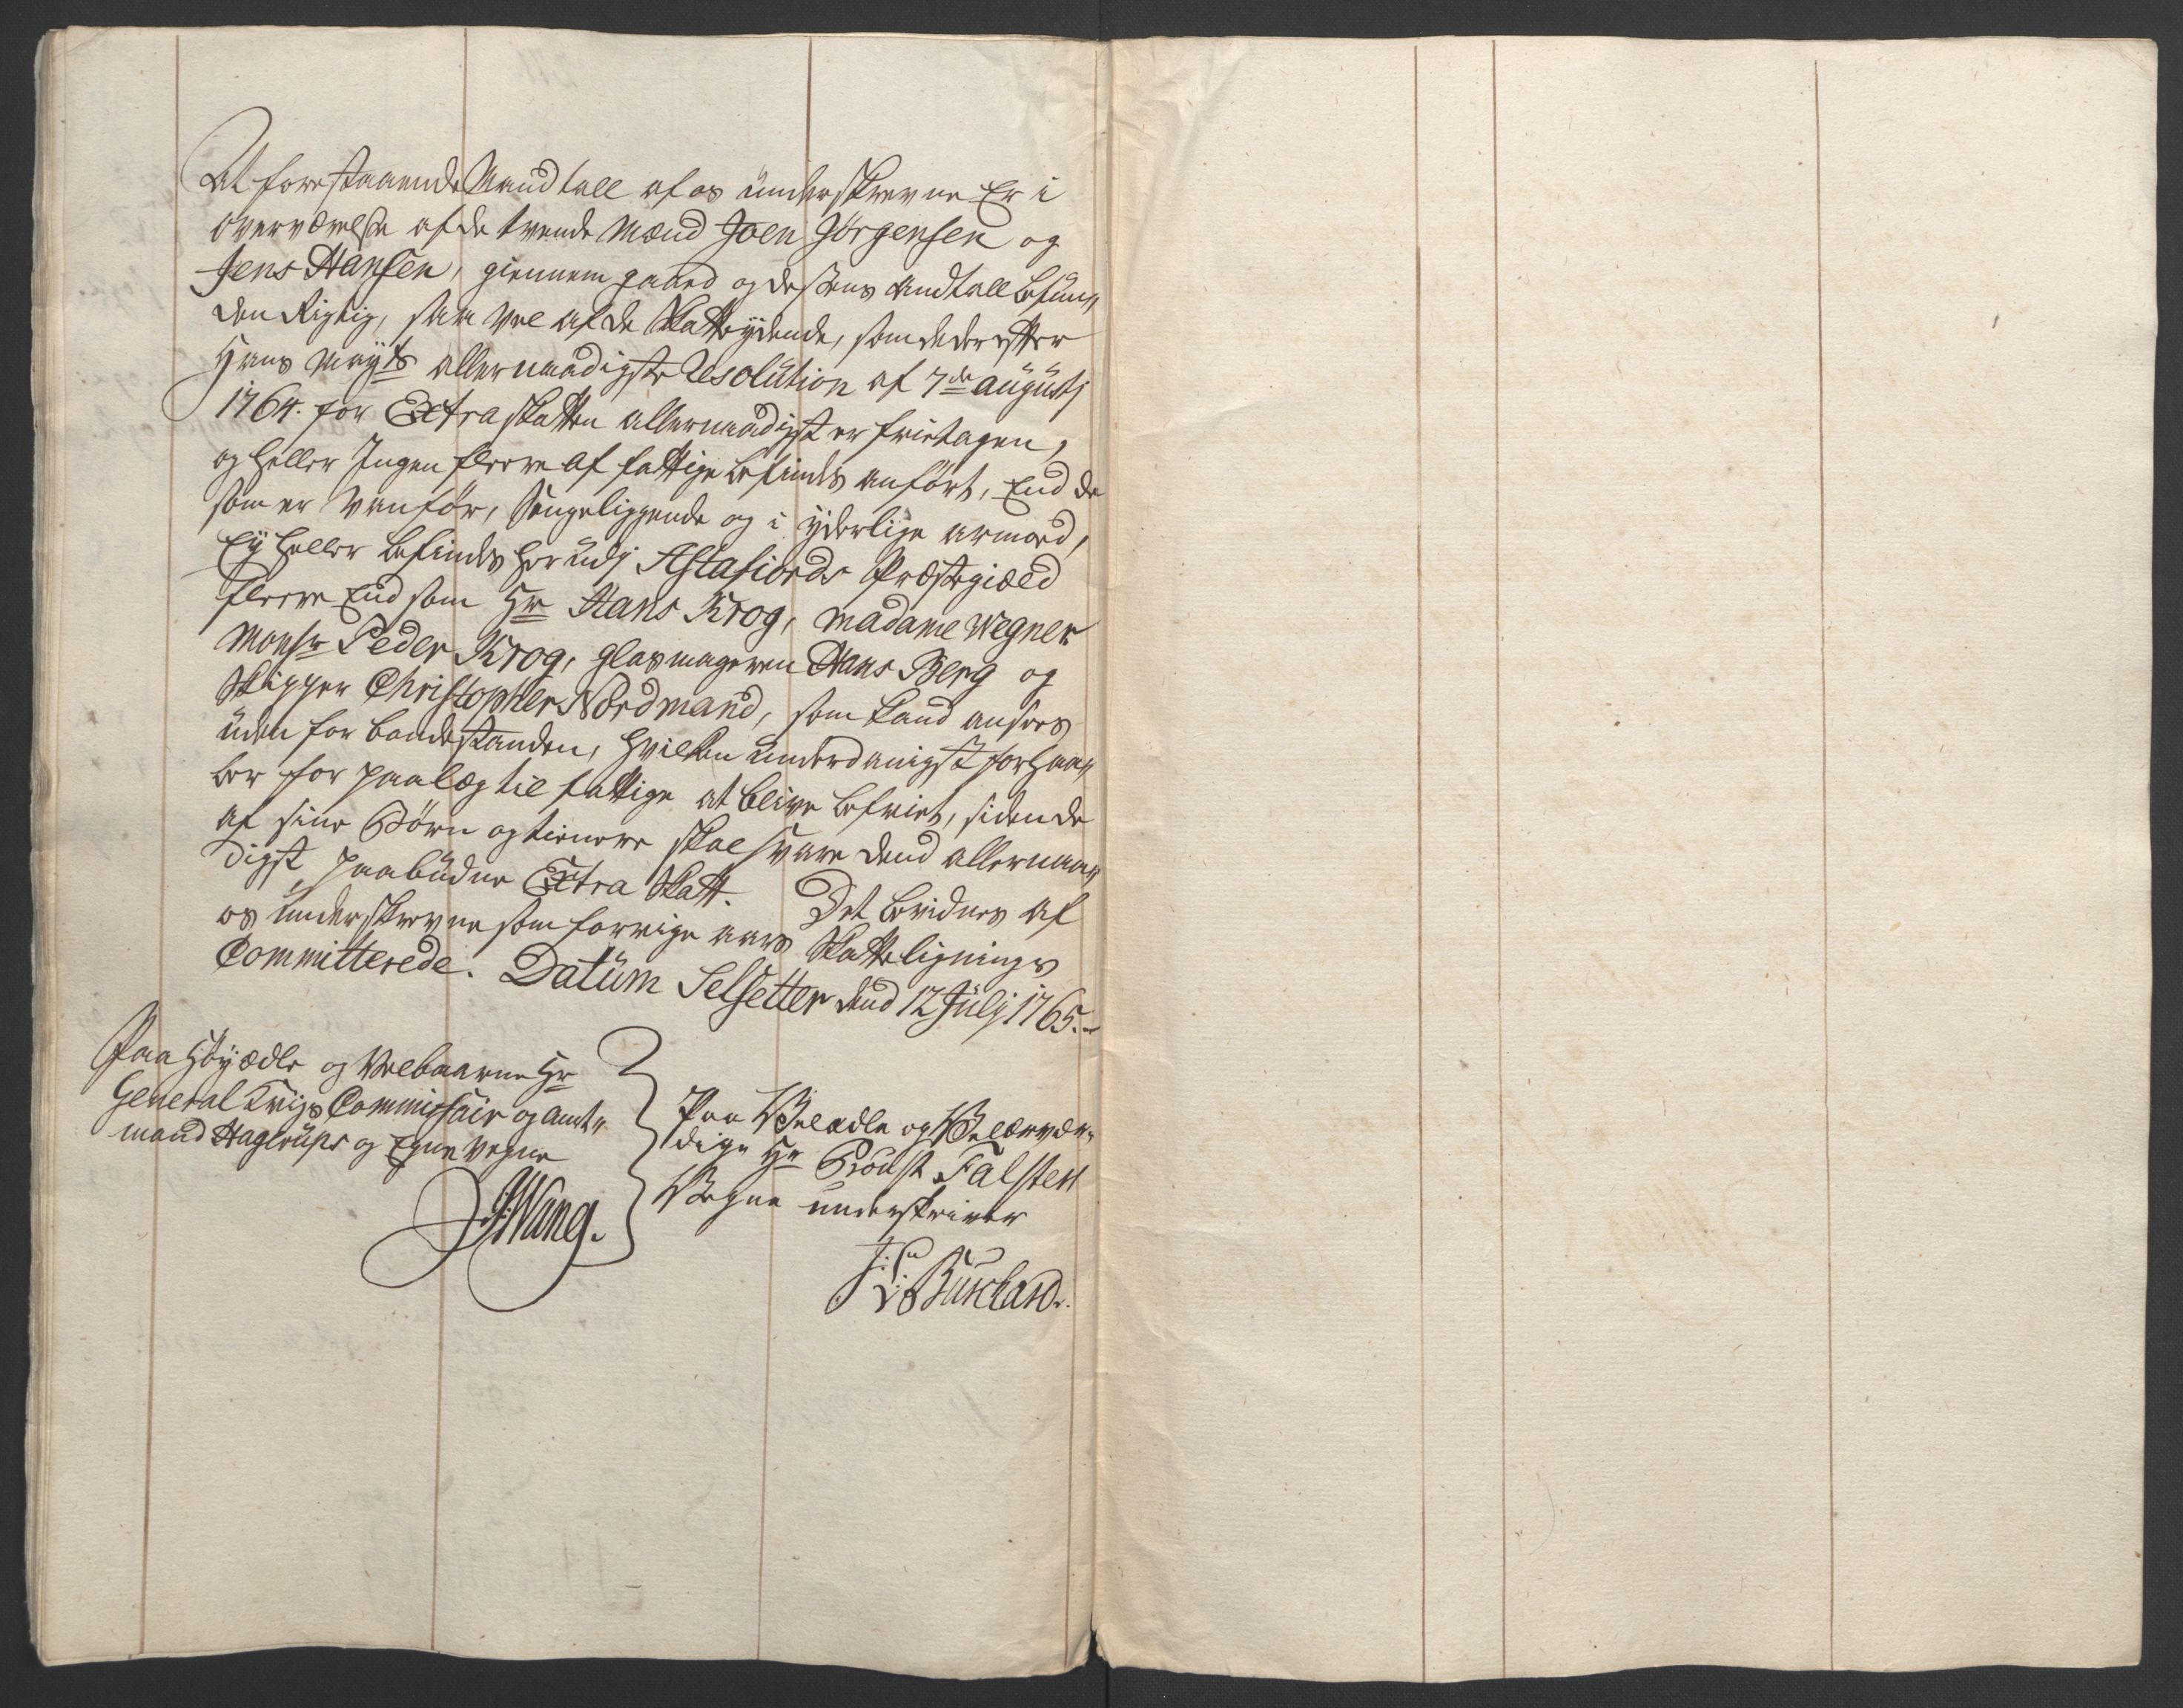 At forestaaende Mandtall af os underskrevne Er i
overværelse af de tvende Mænd Joen Jörgensen og
Jens Hansen, giennemgaaed og dessens Andtall befun„
den Rigtig, saa vel af de Skatteÿdende, som de der efter
Hans Mayts allernaadigste Resolution af 7de augusti
1764. for Extraskatten allernaadigst er frietagen,
og heller Ingen fleere af fattige befindes anfört, End de
som er Vanför, Sengeliggende og i ÿderlige armoed,
Eÿ heller befindes her udj Astafiords Præstegiæld
fleere End som Hr Hans Krog, Madame Wegner
Monsr Peder Krog, glasmageren Hans Berg og
Skipper Christopher Nordmand, som kand ansees
uden for bondestanden, hvilken underdanigst forhaa„
ber for paalæg til fattige at blive befriet, siden de
af sine Börn og tienere skal svare dend allernaa„
digst paabudne Extra Skatt. Det bevidnes af
os underskrevne som forrige aars Skatteligningss
Committerede. Datum Selsetter dend 12 Julj 1765.
Paa Höÿædle og Velbaarne Hr
General Krigs Commissair og Amt„
mand Hagerups og Egne Vegne
Wang.
Paa Velædle og Velærvær„
dige Hr Provst Falsten
Vegne underskriver
Burchard.